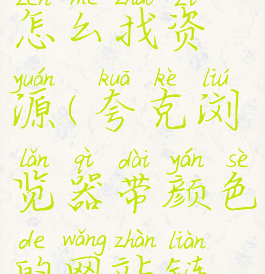 zěn me zhǎo zī
怎么找资
yuán kuā kè liú
源(夸克浏
lǎn qì dài yán sè
览器带颜色
de wǎng zhàn liàn
的网站链